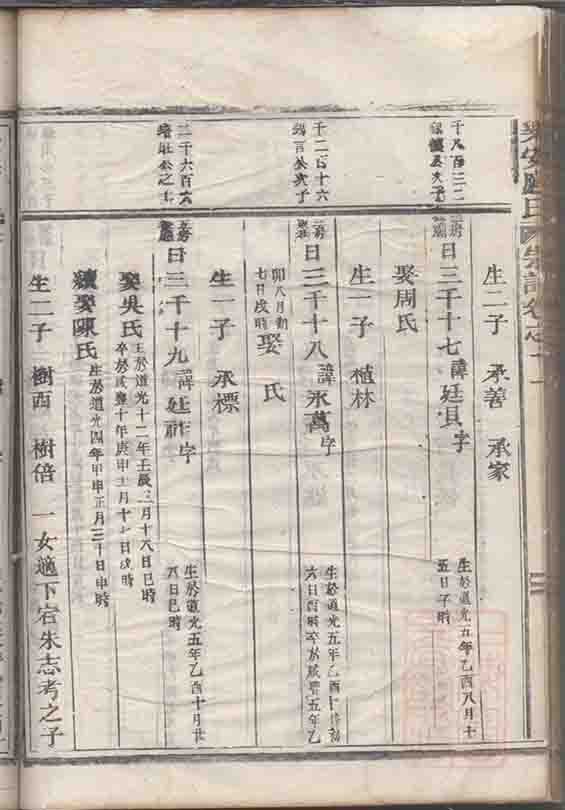 生二子 承善 承家
千八百三二
日三千十七 諱廷 字
生於道光五年乙酉八月十
五日子時
娶周氏
生一子 植林
千二百十六
日三千十八 諱永萬字
生於道光五年乙酉十
六日酉時卒於咸豐五年乙
卯八月初
七日戌時
娶 氏
生一子 承標
二千六百六
日三千十九 諱廷祚字
生於道光五年乙酉十月廿
八日巳時
娶吳氏
生於道光十二年壬辰三月十八日巳時
卒於咸豐十年庚申十二月十七日戌時
續娶陳氏
生於道光四年甲申正月三十日申時
生二子 樹西 樹倍 一女適下宕朱志考之子